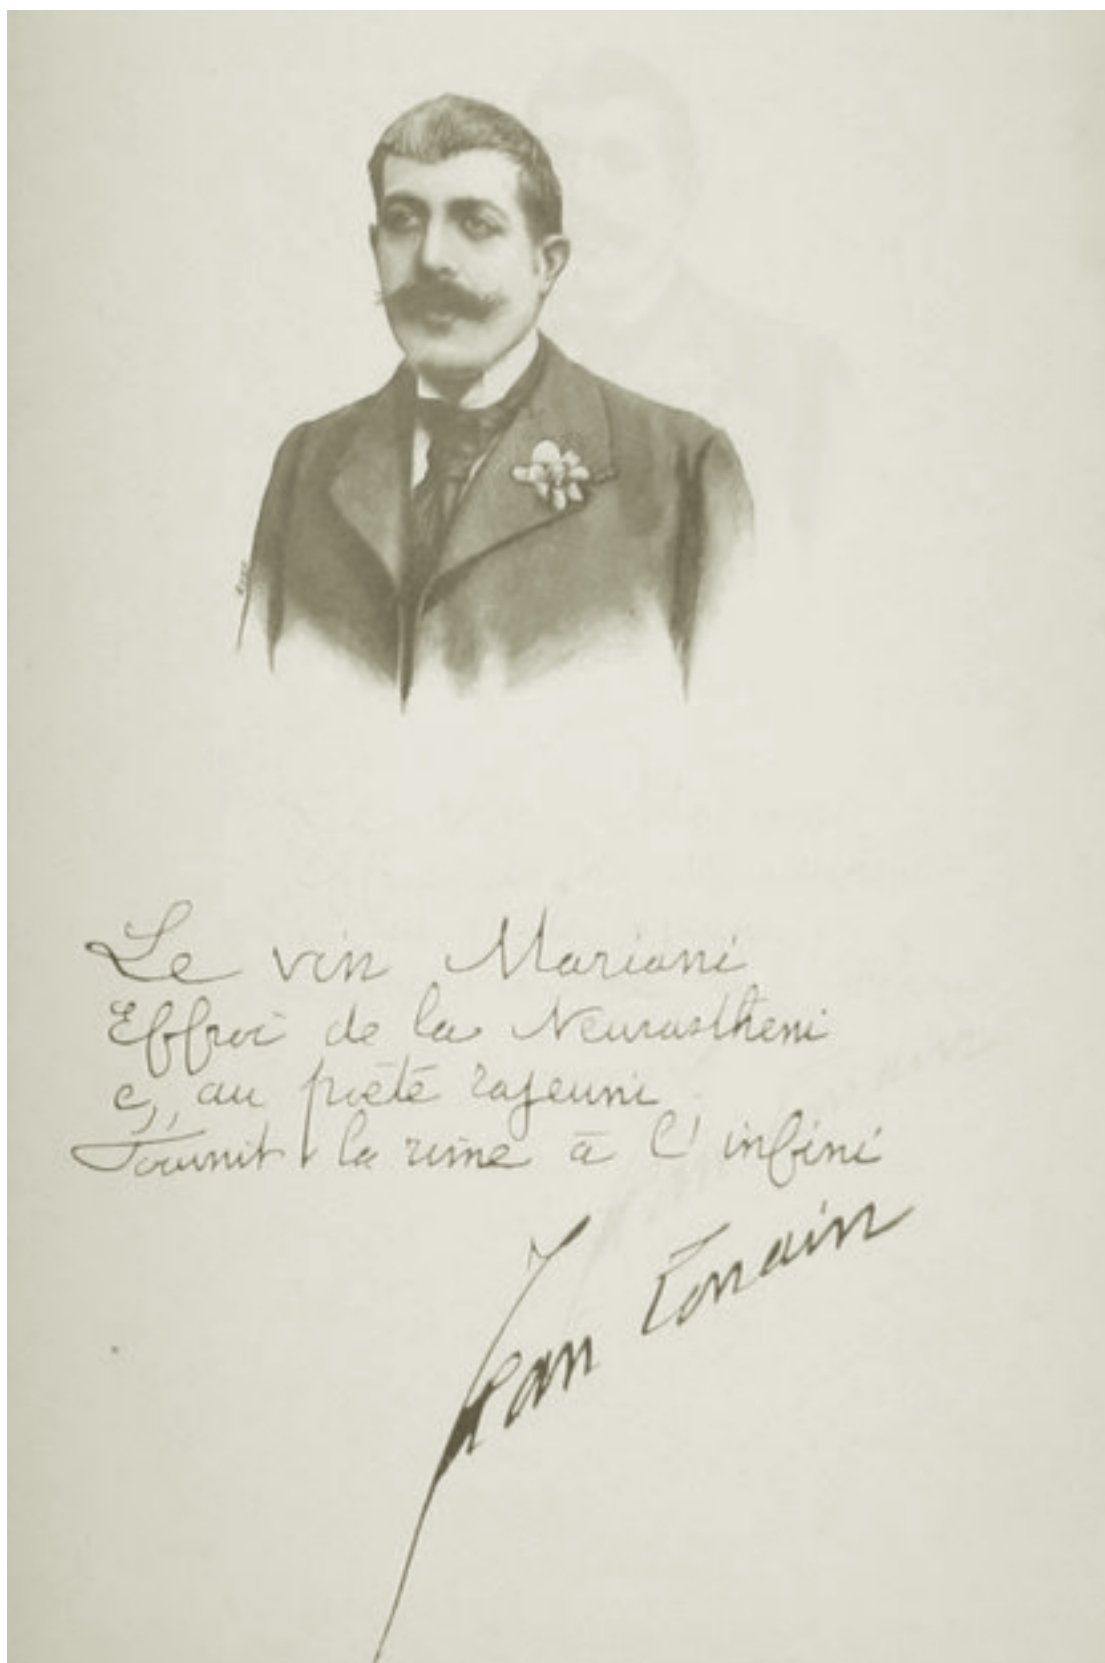 Le vin Mariani
Effroi de la Neurastheni
e, au poète rajeuni
Fournit la rime à l'infini
Jean Lorrain